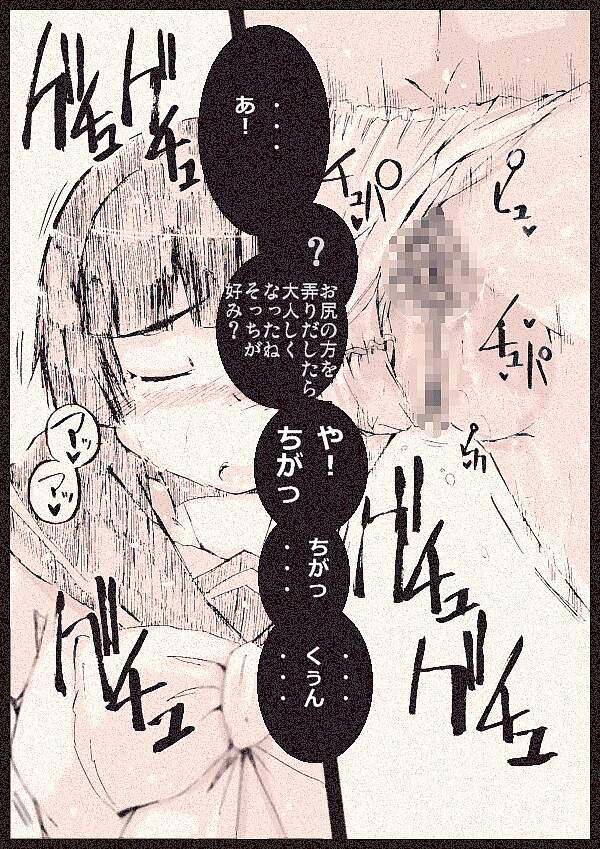 ・・・
あ!
?
お尻の方を
弄りだしたら
大人しく
なったね
そっちが
好み?
や!
ちがっ
ちがっ
・・・
・・・
くぅん
・・・
ゲチュ
ゲチュ
チュパ
ピュ
チュパ
アッ
アッ
ゲチュ
ゲチュ
ゲチュ